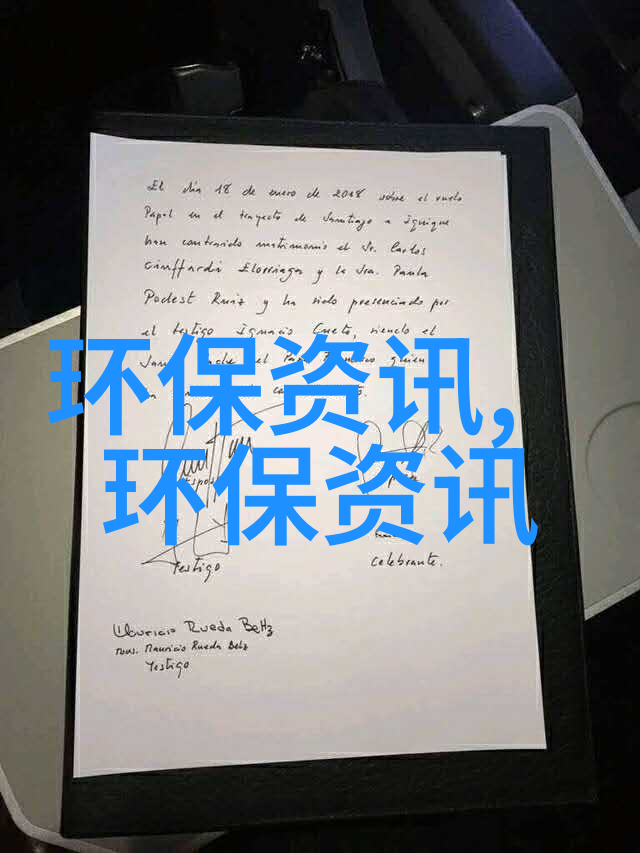 El día 18 de enero de 2018 sobre el vuelo
Papal en el trayecto de Santiago a Iquique
han contraido matrimonio el Sr. Carlos
Ciuffardi Elorriaga y la Sra. Paula
Podest Ruiz y ha sido presenciado por
el testigo Ignacio Cueto, siendo el
el Papa quien
环保资讯,
环保资讯
Testigo
Celebrante.
Mauricio Rueda Beltz
Mons. Mauricio Rueda Beltz
Testigo